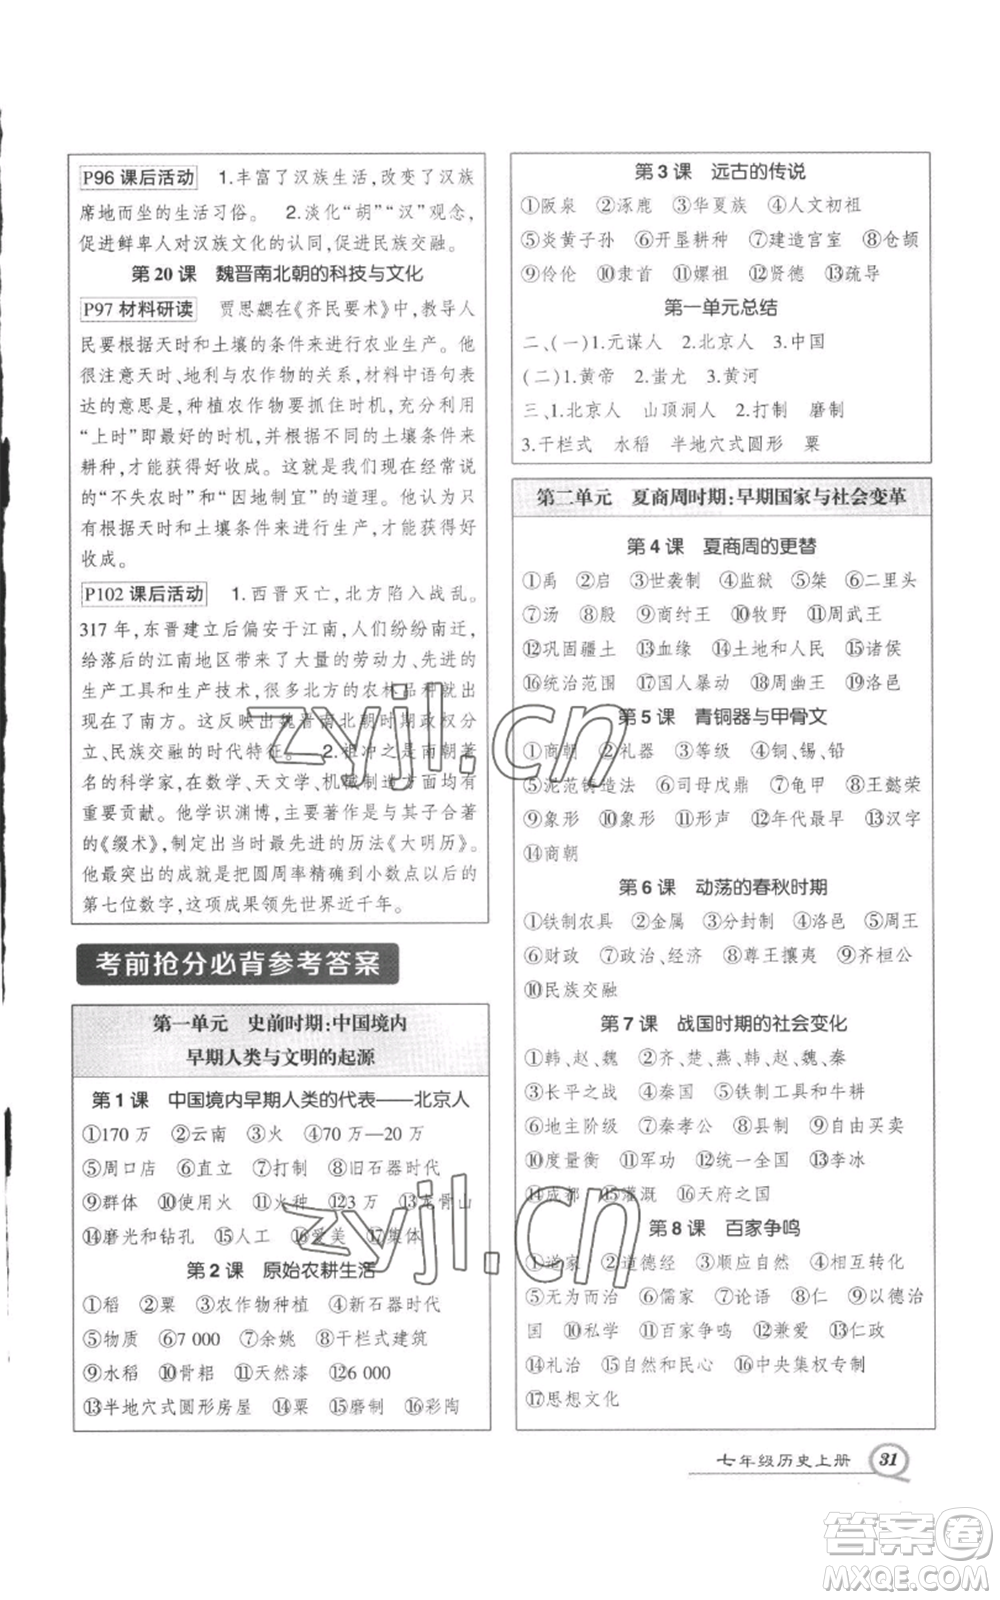 P96 课后活动 1.丰富了汉族生活,改变了汉族
席地而坐的生活习俗。 2.淡化“胡”“汉”观念,
促进鲜卑人对汉族文化的认同,促进民族交融。
第 20 课 魏晋南北朝的科技与文化
P97 材料研读 贾思勰在《齐民要术》中,教导人
民要根据天时和土壤的条件来进行农业生产。他
很注意天时、地利与农作物的关系,材料中语句表
达的意思是,种植农作物要抓住时机,充分利用
“上时”即最好的时机,并根据不同的土壤条件来
耕种,才能获得好收成。这就是我们现在经常说
的“不失农时”和“因地制宜”的道理。他认为只
有根据天时和土壤条件来进行生产,才能获得好
收成。
P102 课后活动 1.西晋灭亡,北方陷入战乱。
317 年,东晋建立后偏安于江南,人们纷纷南迁,
给落后的江南地区带来了大量的劳动力、先进的
生产工具和生产技术,很多北方的农林品种就在
南方。这反映出魏晋南北朝时期政权分
立、民族交融的时代特征。 2.祖冲之是南朝著
名的科学家,在数学、天文学、机械制造三方面有
重要贡献。他学识渊博,主要著作是与其子合著
的《缀术》,制定出当时最先进的历法《大明历》。
他最突出的成就是把圆周率精确到小数点以后的
第七位数字,这项成果领先世界近千年。
考前抢分必背参考答案
第一单元 史前时期:中国境内
早期人类与文明的起源
第 1 课 中国境内早期人类的代表——北京人
①170 万 ②云南 ③火 ④70 万—20 万
⑤周口店 ⑥直立 ⑦打制 ⑧旧石器时代
⑨群体 ⑩使用火 ⑪火种 ⑫3 万 ⑬龙骨山
⑭磨光和钻孔 ⑮人工 ⑯爱美 ⑰集体
第 2 课 原始农耕生活
①稻 ②粟 ③农作物种植 ④新石器时代
⑤物质 ⑥7 000 ⑦余姚 ⑧干栏式建筑
⑨水稻 ⑩骨耜 ⑪天然漆 ⑫6 000
⑬半地穴式圆形房屋 ⑭粟 ⑮磨制 ⑯彩陶
第 3 课 远古的传说
①阪泉 ②涿鹿 ③华夏族 ④人文初祖
⑤炎黄子孙 ⑥开垦耕种 ⑦建造宫室 ⑧仓颉
⑨伶伦 ⑩隶首 ⑪嫘祖 ⑫贤德 ⑬疏导
第一单元总结
二、(一)1.元谋人 2.北京人 3.中国
(二)1.黄帝 2.蚩尤 3.黄河
三、1.北京人 山顶洞人 2.打制 磨制
3.干栏式 水稻 半地穴式圆形 粟
第二单元 夏商周时期:早期国家与社会变革
第 4 课 夏商周的更替
①禹 ②启 ③世袭制 ④监狱 ⑤桀 ⑥二里头
⑦汤 ⑧殷 ⑨商纣王 ⑩牧野 ⑪周武王
⑫巩固疆土 ⑬血缘 ⑭土地和人民 ⑮诸侯
⑯统治范围 ⑰国人暴动 ⑱周幽王 ⑲洛邑
第 5 课 青铜器与甲骨文
①商朝 ②礼器 ③等级 ④铜、锡、铅
⑤泥范铸造法 ⑥司母戊鼎 ⑦龟甲 ⑧王懿荣
⑨象形 ⑩象形 ⑪形声 ⑫年代最早 ⑬汉字
⑭商朝
第 6 课 动荡的春秋时期
①铁制农具 ②金属 ③分封制 ④洛邑 ⑤周王
⑥财政 ⑦政治、经济 ⑧尊王攘夷 ⑨齐桓公
⑩民族交融
第 7 课 战国时期的社会变化
①韩、赵、魏 ②齐、楚、燕、韩、赵、魏、秦
③长平之战 ④秦国 ⑤铁制工具和牛耕
⑥地主阶级 ⑦秦孝公 ⑧县制 ⑨自由买卖
⑩度量衡 ⑪军功 ⑫统一全国 ⑬李冰
⑭成都 ⑮灌溉 ⑯天府之国
第 8 课 百家争鸣
①道家 ②道德经 ③顺应自然 ④相互转化
⑤无为而治 ⑥儒家 ⑦论语 ⑧仁 ⑨以德治
国 ⑩私学 ⑪百家争鸣 ⑫兼爱 ⑬仁政
⑭礼治 ⑮自然和民心 ⑯中央集权专制
⑰思想文化
七年级历史上册 31
zyjl.cn
zyjl.cn
答案圈
MXQE.COM